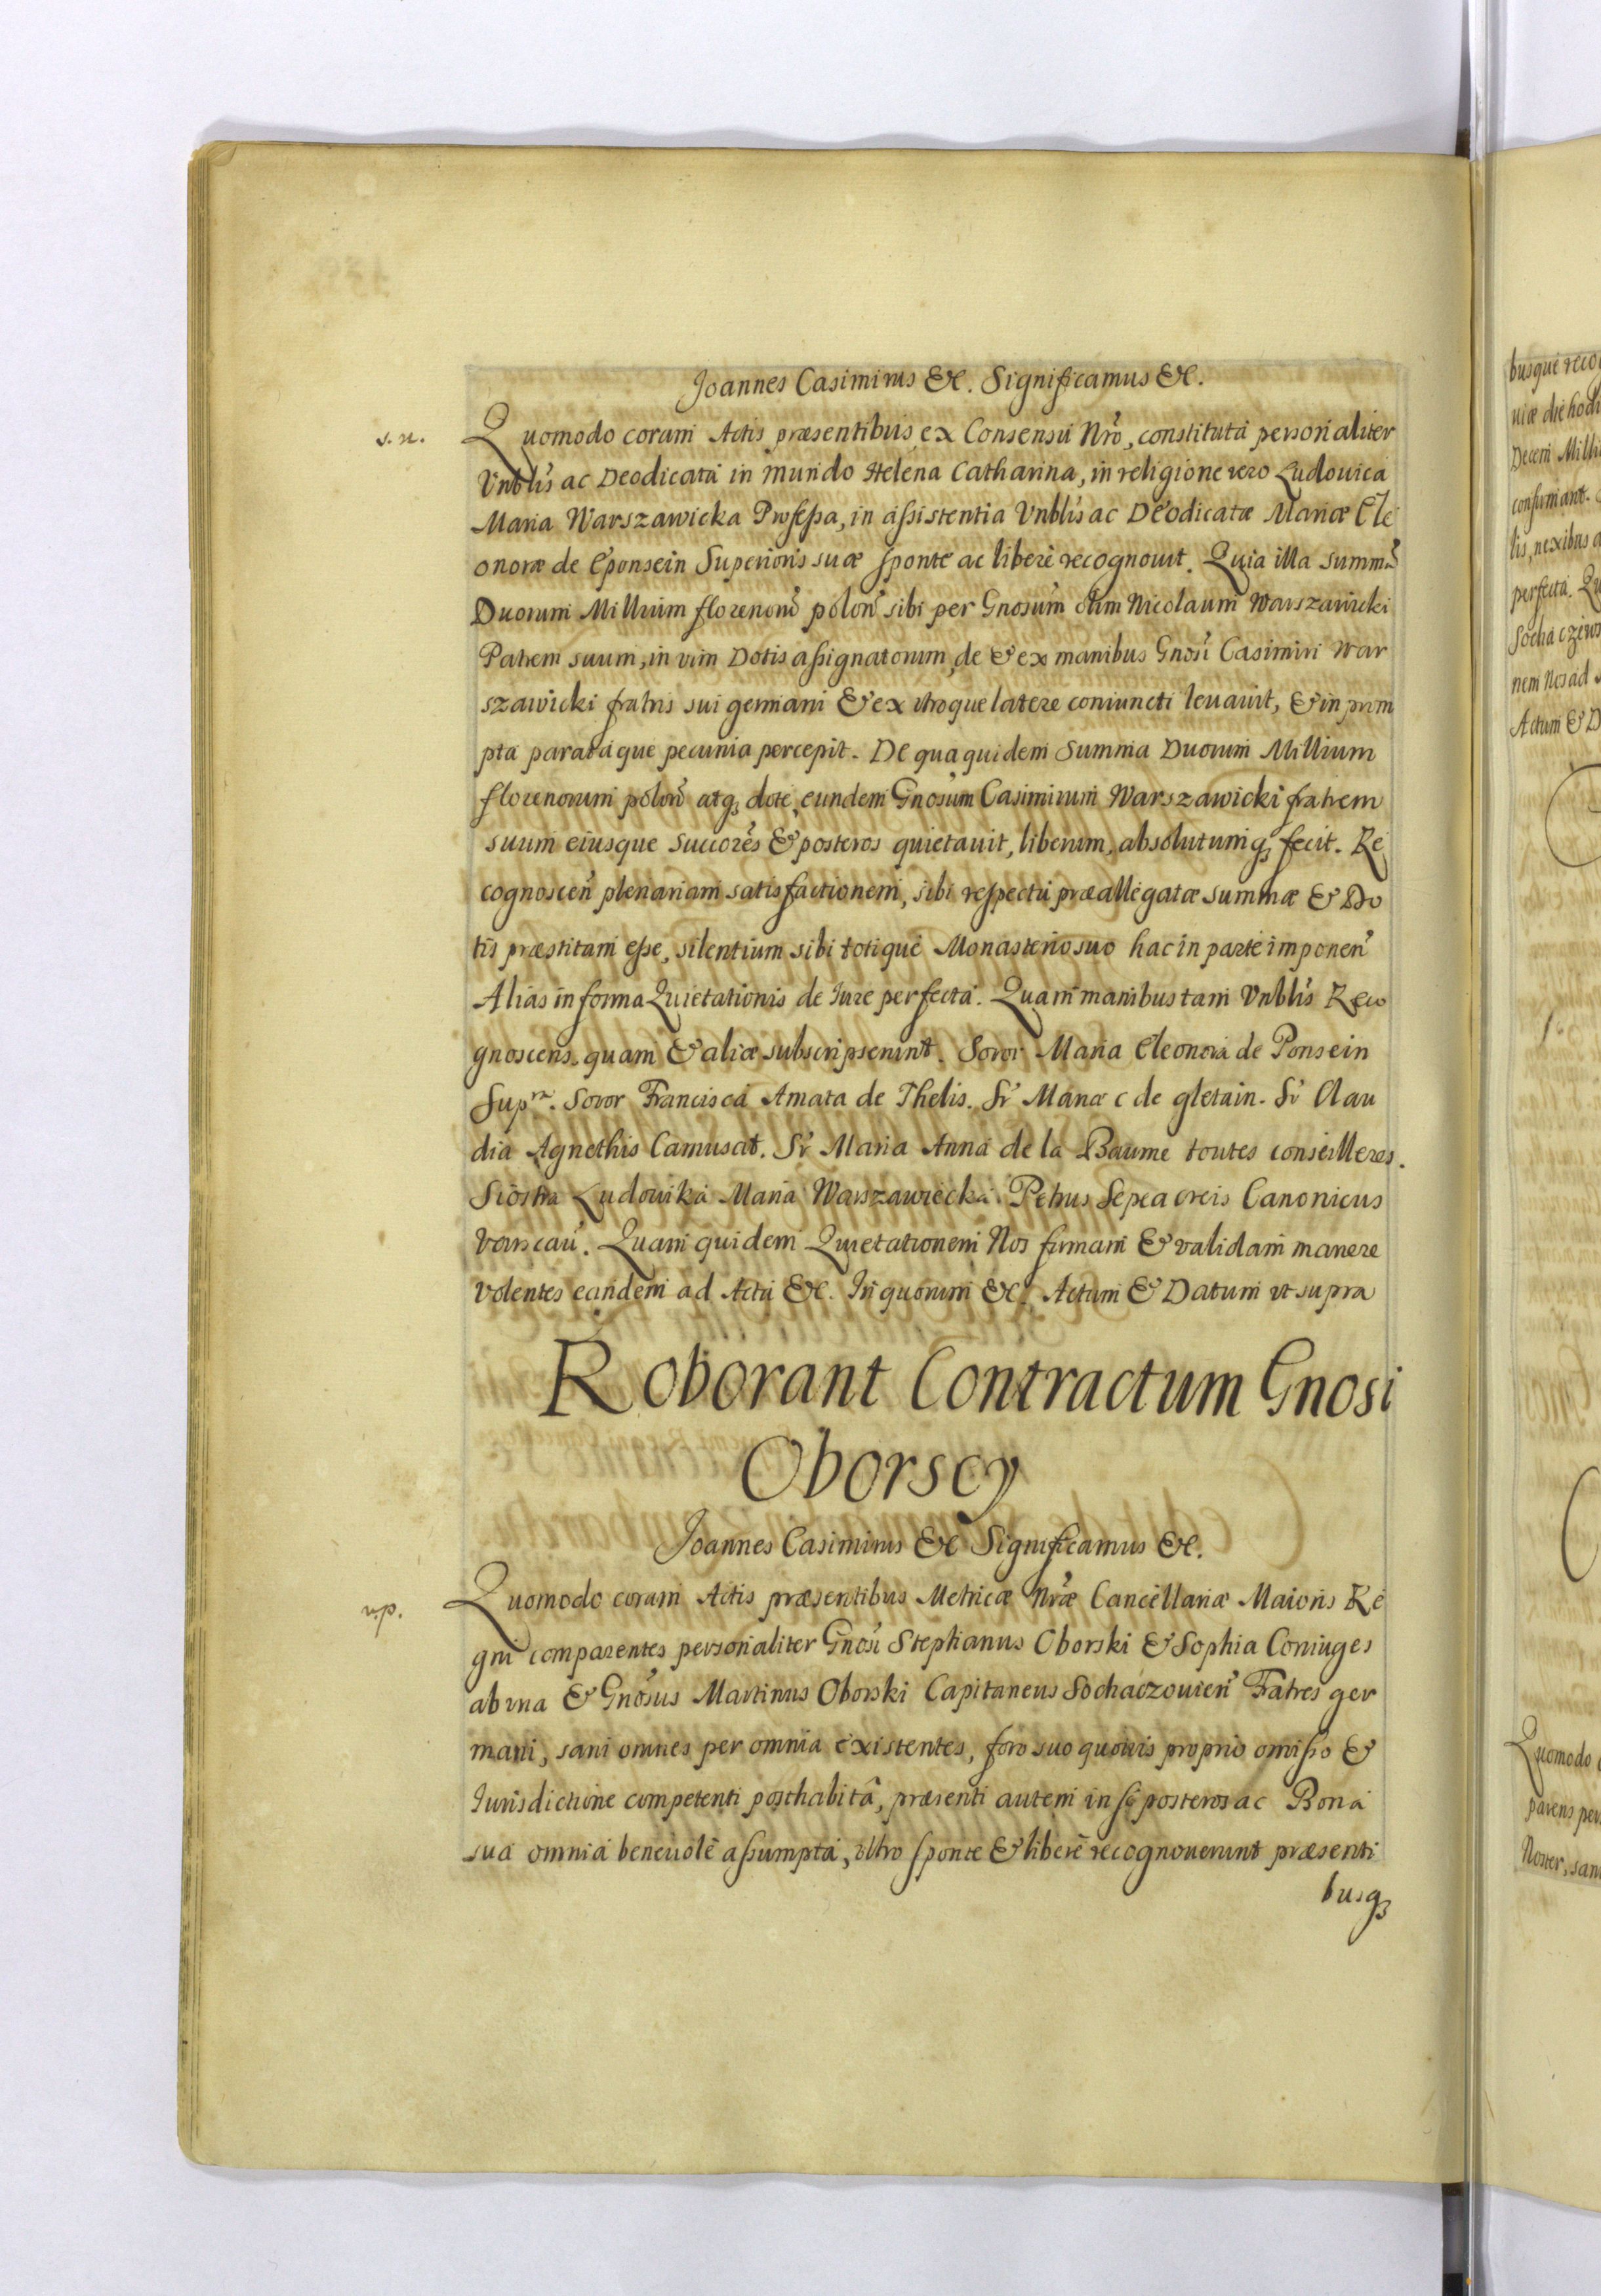 Joannes Casimirus &c. Significamus &c.
s. n.
Quomodo coram Actis præsentibus ex Consensu Nrõ, constituta personaliter
Vnblis ac Deodicata in mundo Helena Catharina, in religione vero Ludouica
Maria Warszawicka Professa, in assistentia Vnblis ac Deodicatæ Mariæ Ele
onoræ de Eponsein Superioris suæ sponte ac liberè recognouit. Quia illa summã
Duorum Millium florenorũ polon̄ sibi per Gnosum olim Nicolaum Warszawicki
Patrem suum, in vim Dotis assignatorum, de & ex manibus Gnosi Casimiri War
szawicki fratris sui germani & ex vtroque latere coniuncti leuauit, & in prom
pta parataque pecunia percepit. De qua quidem Summa Duorum Millium
florenorum polon̄ atq; dote, eundem Gnosum Casimirum Warszawicki fratrem
suum eiusque Succores & posteros quietauit, liberum, absolutumq; fecit. Re
cognoscen̄ plenariam satisfactionem, sibi respectu præallegatæ summæ & Do
tis præstitam esse, silentium sibi totique Monasterio suo hac in parte imponen̄
Alias in forma Quietationis de Iure perfecta. Quam manibus tam Vnblis Reco
gnoscens, quam & aliæ subscripserunt. Soror Maria Eleonora de Ponsein
Sup.re. Soror Francisca Amata de Thelis. Sr̃ Mariæ C de gletain. Sr̃ Clau
dia Agnethis Camusat. Sr̃ Maria Anna de la Baume toutes conseilleres.
Siostra Ludouika Maria Warszawiecka. Petrus Canonicus
Quam quidem Quietationem Nos firmam & validam manere
volentes eandem ad Acta &c. In quorum &c. Actum & Datum vt supra
Roborant Contractum Gnosi
Oborscy
Joannes Casimirus &c Significamus &c.
np.
Quomodo coram Actis præsentibus Metricæ Nræ Cancellariæ Maioris Re
gni comparentes personaliter Gnosi Stephanus Oborski & Sophia Coniuges
ab vna & Gnosus Martinus Oborski Capitaneus Sochaczouien̄ Fratres ger
mani, sani omnes per omnia existentes, foro suo quouis proprio omisso &
Iurisdictione competenti posthabitâ, præsenti autem in se posteros ac Bona
sua omnia beneuolè assumpta, vltro sponte & liberè recognouerunt præsenti
busq;